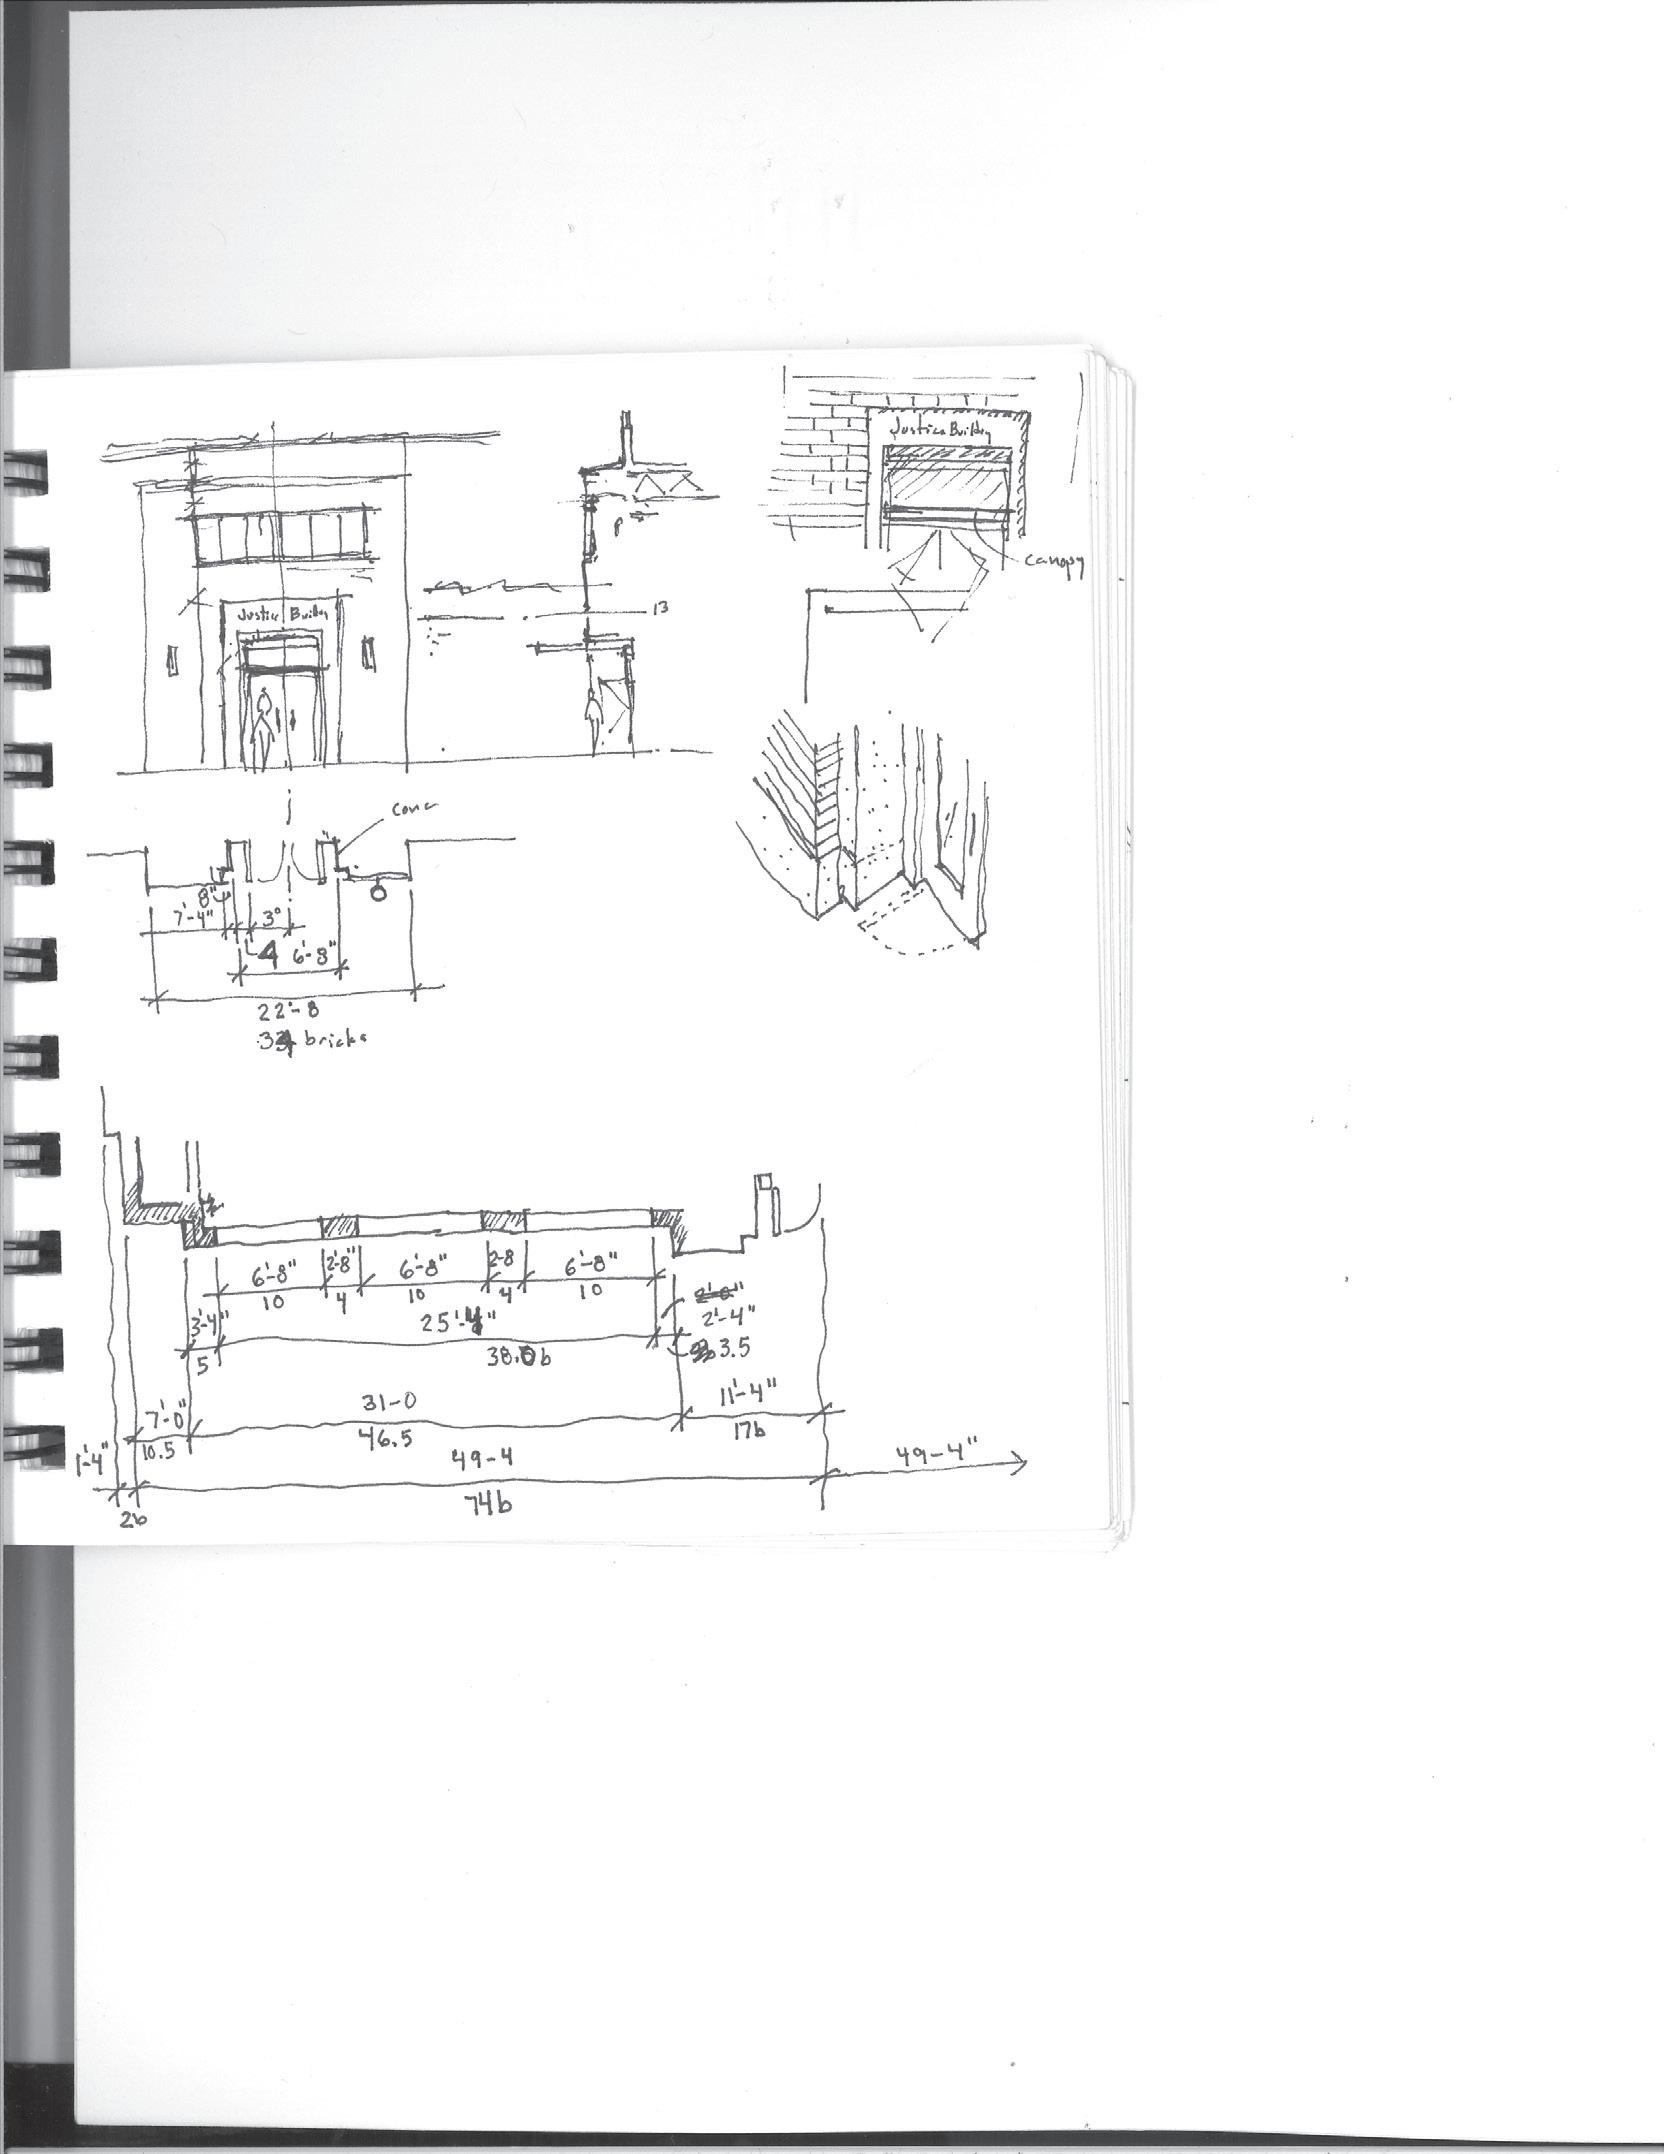 Justice Building
canopy
13
Justice Building
conc
8"
7'-4"
3°
4
6'-8"
22'-8
34 bricks
6'-8"
2'-8"
6'-8"
2-8
6'-8"
10
4
10
4
10
2'-4"
3'-4"
25'-4"
5
38.0b
3.5
11'-4"
31-0
7'-0"
17b
10.5
46.5
1'-4"
49-4
49-4"
74b
2b